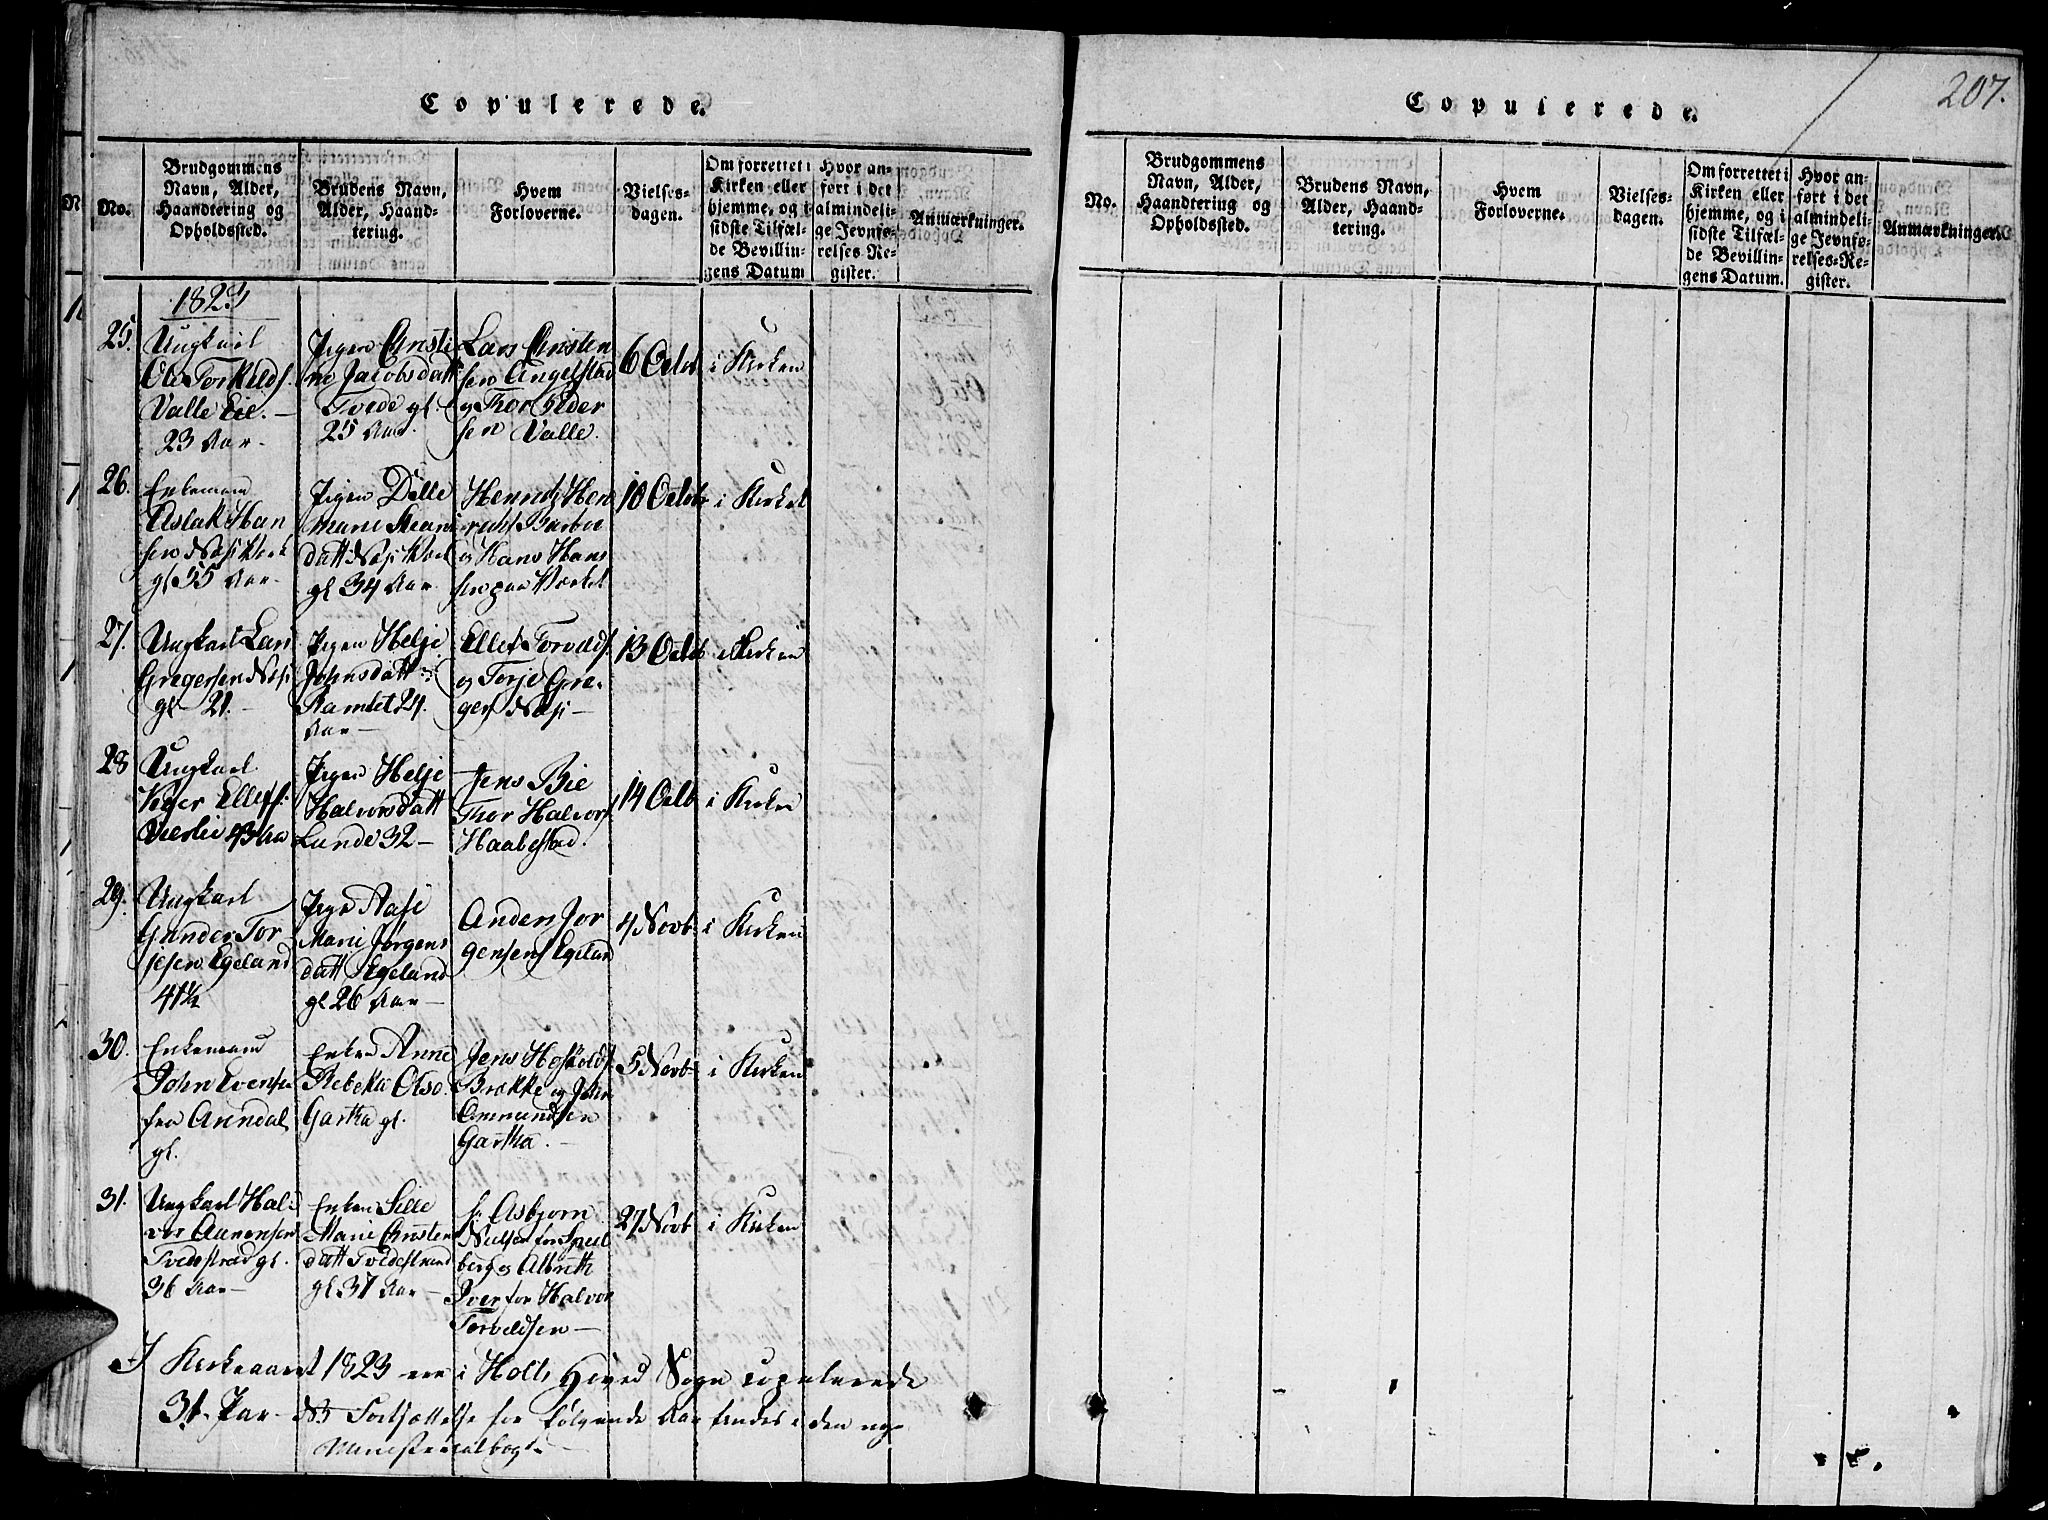 207.
Copulerede.
No.
Brudgommens
Navn, Alder,
Haandtering og
Opholdssted.
Brudens Navn,
Alder, Haand-
tering.
Hvem
Forloverne.
Vielses-
dagen.
Om forrettet i
Kirken eller
hjemme, og i
sidste Tilfæl-
de Bevillin-
gens Datum
Hvor an-
ført i det
almindeli-
ge Jevnfø-
relses-Re-
gister.
Anmærkninger.
1823
25.
Ungkarl
Ole Torkelds.
Valle Eie.
23 Aar
Pigen Christi
ne Jacobsdatt
Tvede gl
25 Aar
Lars Christen
sen Angelstad
og Thor Peder
sen Valle.
6 Octob
i Kirken
26.
Enkemand
Aslak Han
sen Næs Værk
gl 55 Aar
Pigen
Marie
datt Næs Værk
gl 34 Aar
og Hans Hans
sen paa Værket
10 Octob
i Kirken
27.
Ungkarl Lars
Gregersen Næs
gl 21.
Pigen Helje
Johnsdatt
Ramlet 24
Aar
Ellef Torvilds.
og Torje Gre-
gers Næs
13 Octob
i Kirken
28
Ungkarl
Ellefs:
43 Aa
Pigen Helje
Halvorsdatt
Lunde 32
Jens Bie
Thor Halvors
Haabestad.
14 Octb
i Kirken
29.
Ungkarl
Gunder Tor
jesen Egeland
41½
Pige Aase
Marie Jørgens
datt Egeland
gl 26 Aar
Anders Jør
gensen Egeland
4 Novb
i Kirken
30.
Enkemand
John Evensen
fra Arendal
gl.
Enken Anne
Rebekka Olsd.
Gartha gl.
Jens Hoskolds.
Brække og John
Ommundsen
Gartha.
5 Novb
i Kirken
31.
Ungkarl Hal
vor Aanensen
Tvedestrand gl.
36 Aar
Enken Sille
Marie Christen
datt Tvedestrand
gl 37 Aar
Hr Asbjørn
Nielsen for
berg og Albreth
Iver for Halvor
Torveldsen
27 Novb
i Kirken
I Kirkeaaret 1823 ere i Holts Hoved Sogn copulerede
31 Par NB Fortsættelse for følgende Aar findes i den nye
Ministerialbog
Copulerede.
No.
Brudgommens
Navn, Alder,
Haandtering og
Opholdssted.
Brudens Navn,
Alder, Haand-
tering.
Hvem
Forloverne.
Vielses-
dagen.
Om forrettet i
Kirken eller
hjemme, og i
sidste Tilfæl-
de Bevillin-
gens Datum.
Hvor an-
ført i det
almindeli-
ge Jevnfø-
relses-Re-
gister.
Anmærkninger.